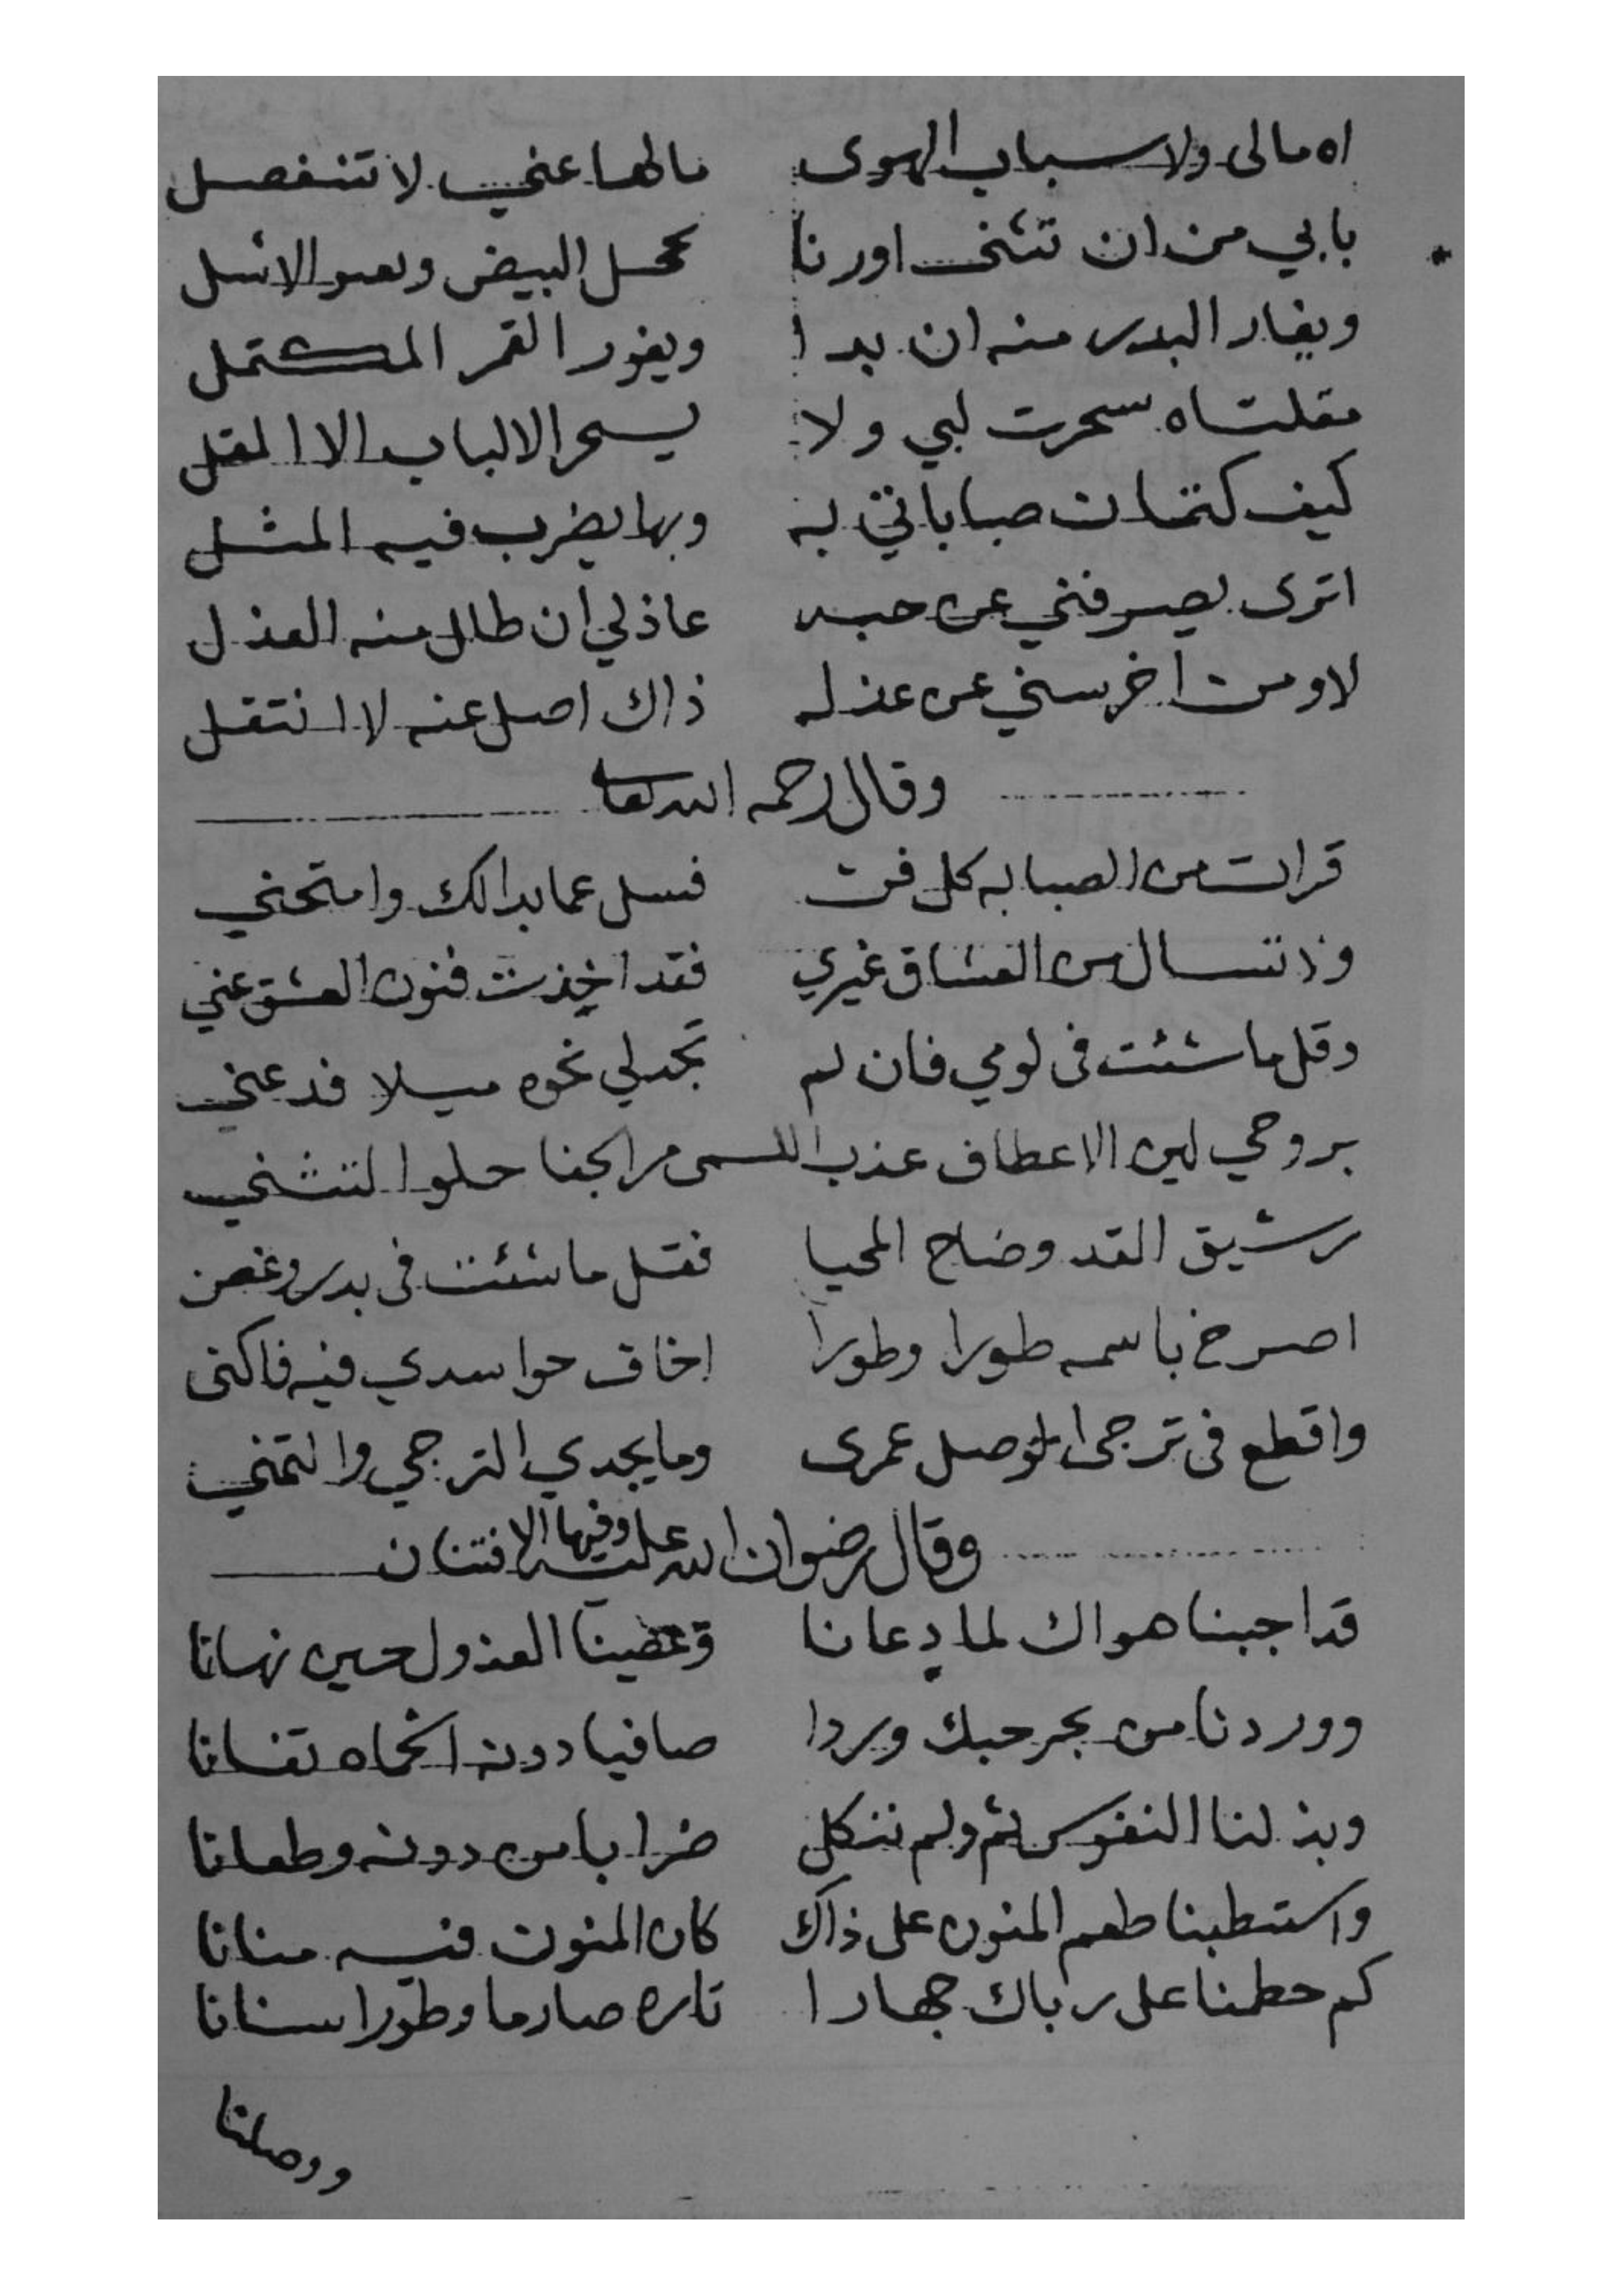 اه مالى ولاسباب الهوى مالها عني لا تنفصل
بابي من ان تثنى اورنا محل البيض الاسل
ويغار البدر منه ان بدا ويغور القمر المكتمل
مقلتاه سحرت لبي ولا يسحر الالباب الا المقل
كيف كتمان صباباتي به وبها يضرب فيه المثل
اترى يصرفني عن حبه عاذلي ان طال منه العذل
لا ومن اخرسني عن عذله ذاك اصل عنه لا انتقل
وقال رحمه الله تعالى
قرات من الصبابه كل فن فسل عما بدا لك وامتحني
تسال من العشاق غيري فقد اخذت فنون العشق عني
وقل ما شئت فى لومي فان لم تجد لي نحوه ميلا فدعني
بروحي لين الاعطاف عذب اللمى مر الجفا حلو التثني
رشيق القد وضاح المحيا فقل ما شئت فى بدر وغصن
اصرخ باسمه طورا وطورا اخاف حواسدي فيه فاكنى
واقطع فى ترجى الوصل عمرى وما يجدي الترجي والتمني
وقال رضوان الله عليه وفيها الافتنان
قد اجبنا هواك لما دعانا وعصينا العذول حين نهانا
ووردنا من بحر حبك وردا صافيا دونه تفانا
وبذلنا النفوس ثم ولم ننكل ضرابا من دونه وطعانا
واستطبنا طعم المنون على ذاك كان المنون فيه منانا
كم حطمنا على رباك جهارا تاره صارما وطورا سنانا
ووصلنا